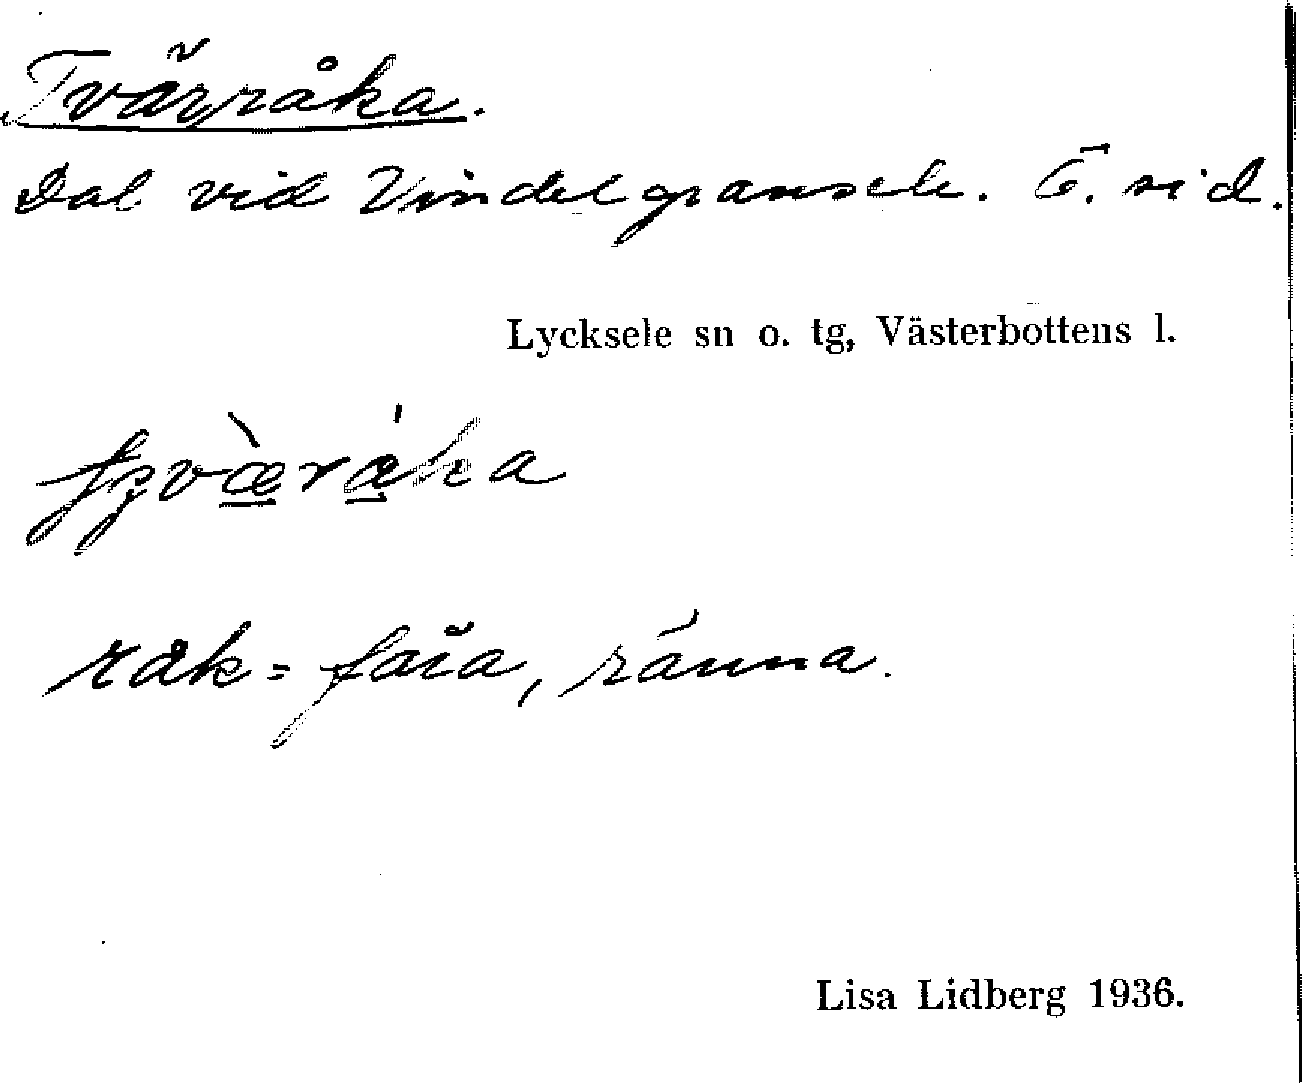 Tvärråka.
Dal vid Vindelgransele. Ö. sid.
Lycksele sn o. tg, Västerbottens l.
råk = fåra, ränna.
Lisa Lidberg 1936.